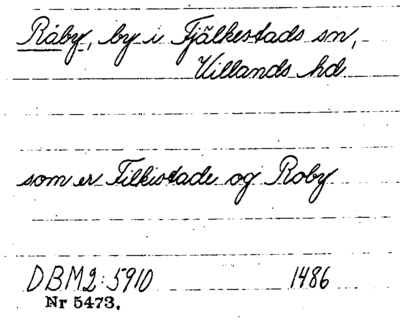 Råby, by i Fjälkestads sn,
Villands hd
som er Filkistade og Roby
DBM2:5910 1486
Nr 5473.